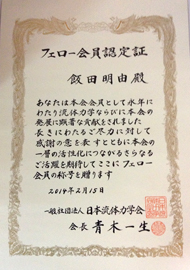 フェロー会員認定証
飯田明由殿
あなたは本会会員として永年に
わたり流体力学ならびに本会の
発展に顕著な貢献をされました
長きにわたるご尽力に対して
感謝の意を表すとともに本会の
一層の活性化につながるさらなる
ご活躍を期待してここにフェロー
会員の称号を贈ります
2014年2月15日
一般社団法人 日本流体力学会
会長 青木一生